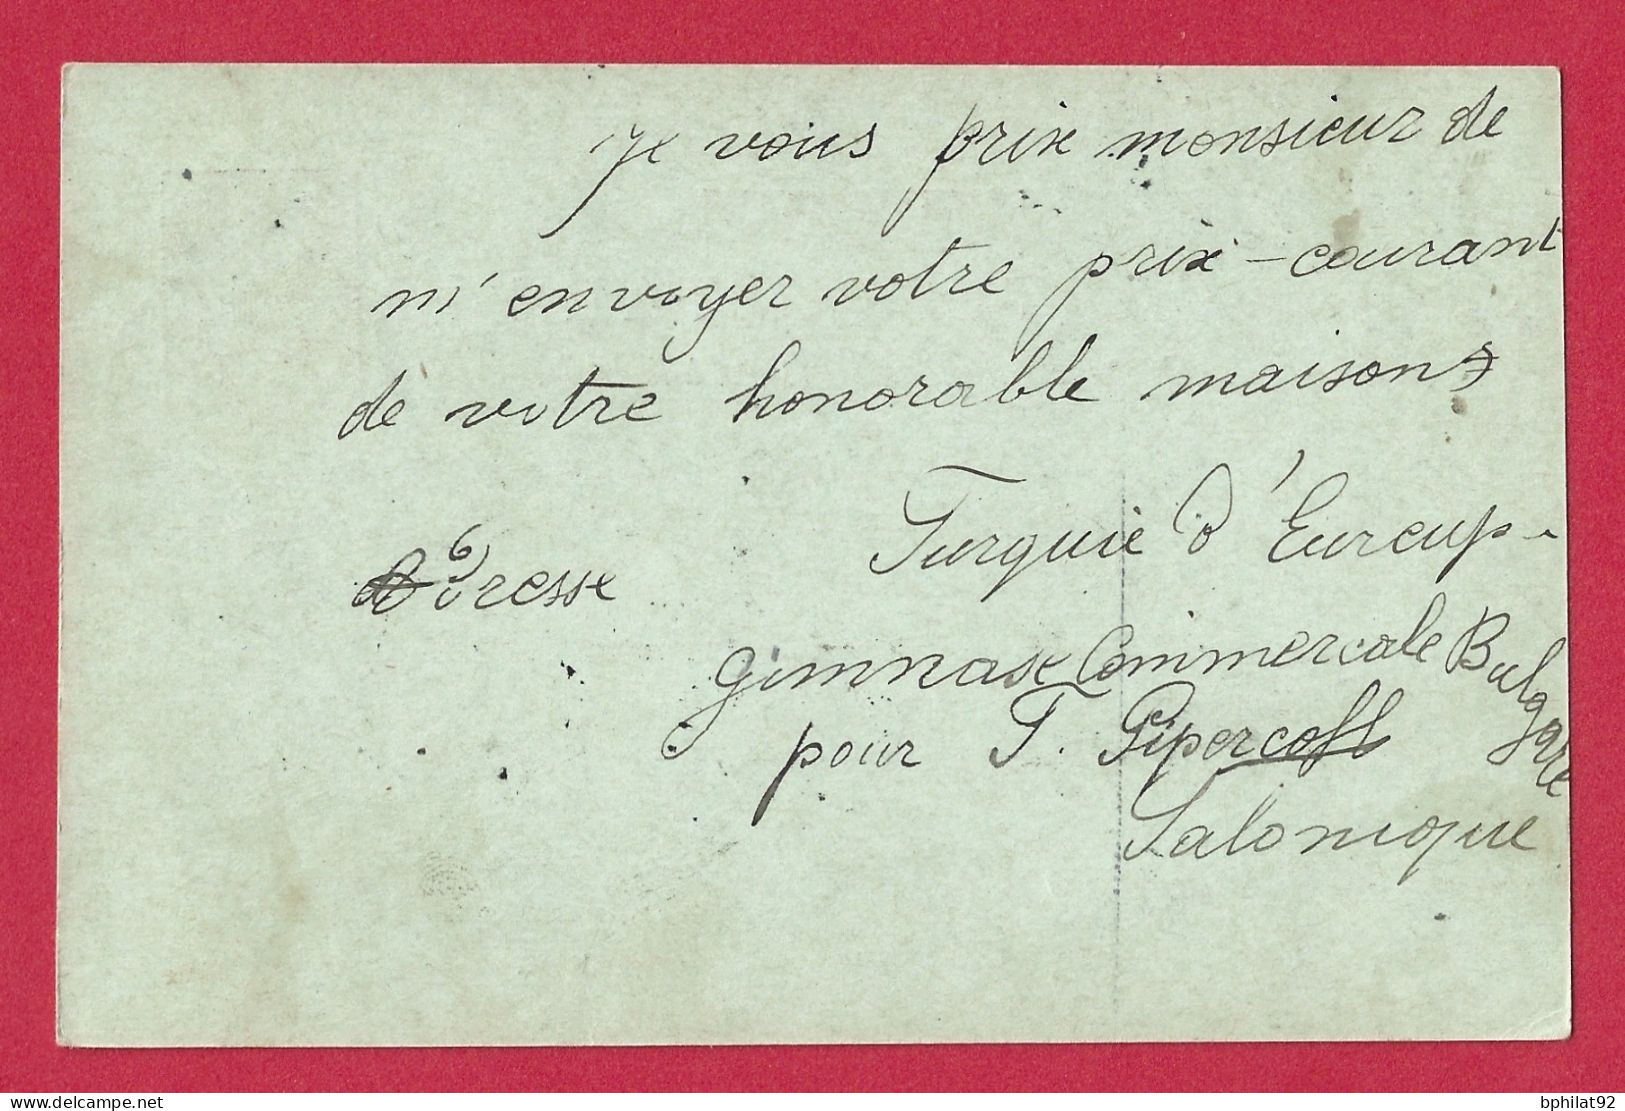 Je vous prix monsieur de
m'envoyer votre prix-courant
de votre honorable maison
Adresse Turquie d'Europ.
Gimnase Commercale Bulgare
pour T. Pipercoff
Salonique
bphilat92